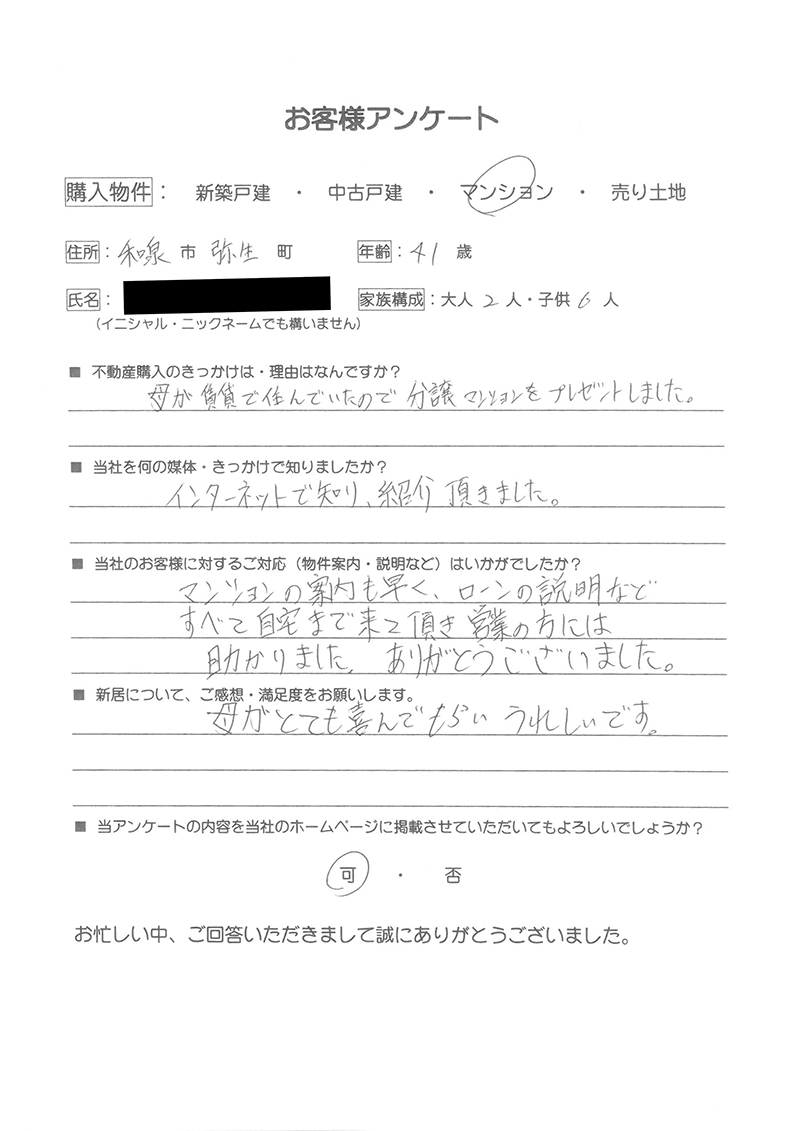 お客様アンケート
購入物件： 新築戸建 ・ 中古戸建 ・ マンション ・ 売り土地
住所：和泉市 弥生 町 年齢：41 歳
氏名： 家族構成：大人 2 人・子供 6 人
（イニシャル・ニックネームでも構いません）
■ 不動産購入のきっかけは・理由はなんですか？
母が賃貸で住んでいたので 分譲マンションをプレゼントしました。
■ 当社を何の媒体・きっかけで知りましたか？
インターネットで知り、紹介頂きました。
■ 当社のお客様に対するご対応（物件案内・説明など）はいかがでしたか？
マンションの案内も早く、ローンの説明など
すべて自宅まで来て頂き営業の方には
助かりました。ありがとうございました。
■ 新居について、ご感想・満足度をお願いします。
母がとても喜んでもらい うれしいです。
■ 当アンケートの内容を当社のホームページに掲載させていただいてもよろしいでしょうか？
可 ・ 否
お忙しい中、ご回答いただきまして誠にありがとうございました。